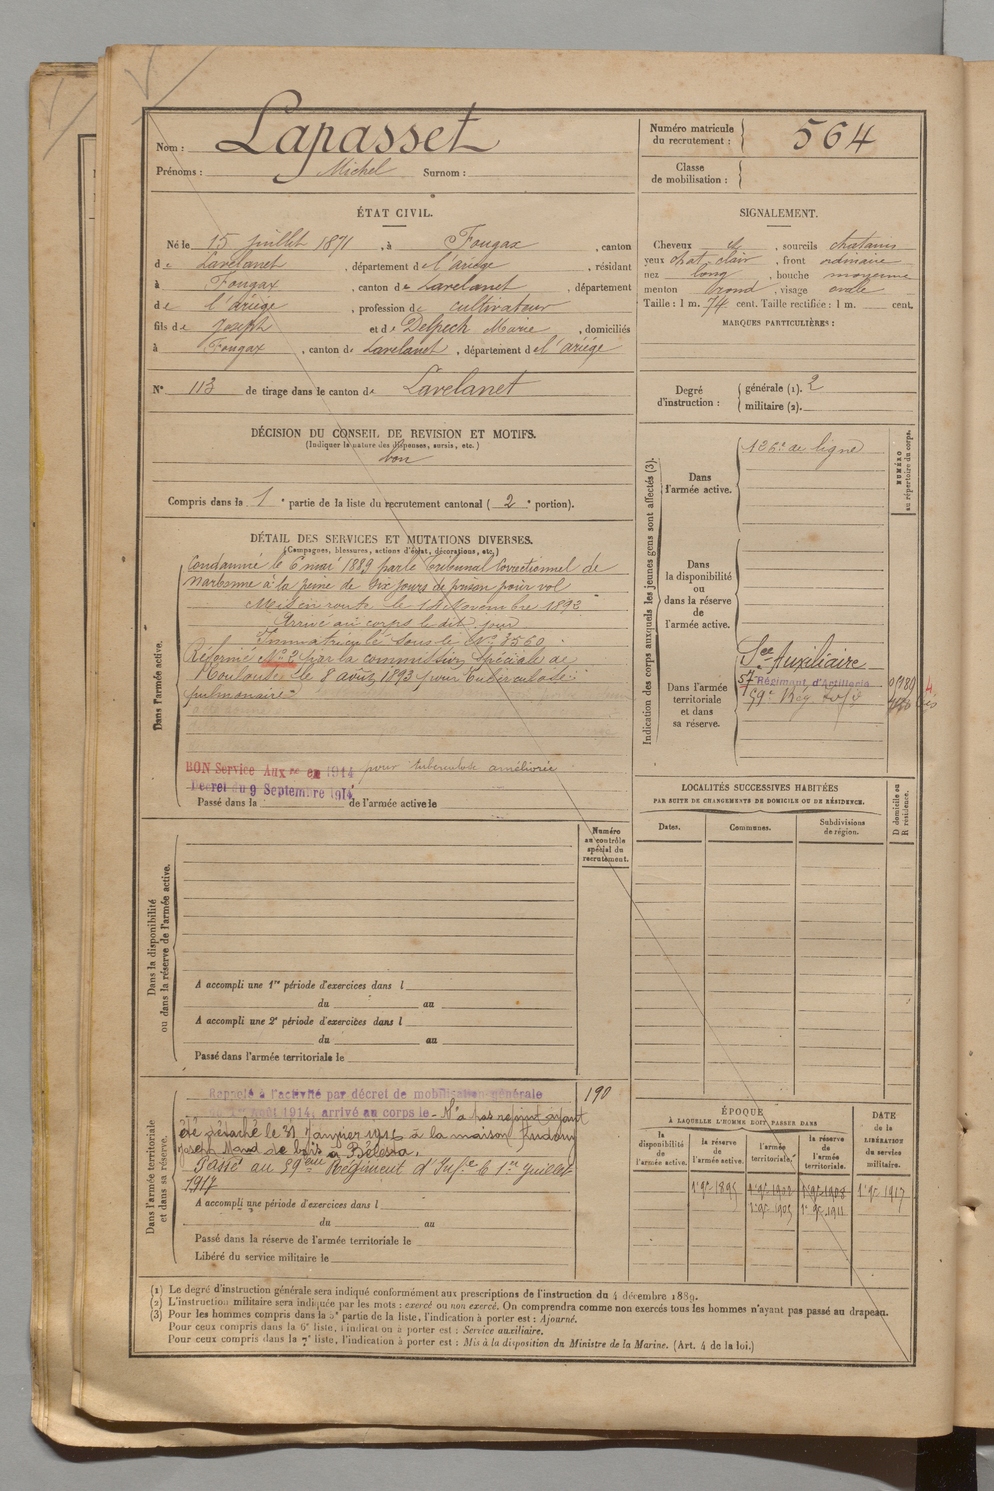 Nom : Lapasset
Prénoms : Michel Surnom :
Numéro matricule du recrutement : 564
Classe de mobilisation :
ÉTAT CIVIL.
Né le 15 juillet 1871, à Fougax, canton
de Lavelanet, département de l'ariège, résidant
à Fougax, canton de Lavelanet, département
de l'ariège, profession de cultivateur
fils de Joseph et de Delpech Marie, domiciliés
à Fougax, canton de Lavelanet, département de l'ariége
N° 113 de tirage dans le canton de Lavelanet
SIGNALEMENT.
Cheveux et, sourcils chatains
yeux chat. clair, front ordinaire
nez long, bouche moyenne
menton rond, visage ovale
Taille : 1 m. 74 cent. Taille rectifiée : 1 m. cent.
MARQUES PARTICULIÈRES :
Degré d'instruction : générale (1). 2
militaire (2).
DÉCISION DU CONSEIL DE REVISION ET MOTIFS.
(Indiquer la nature des dispenses, sursis, etc.)
bon
Compris dans la 1e partie de la liste du recrutement cantonal (2e portion).
DÉTAIL DES SERVICES ET MUTATIONS DIVERSES.
(Campagnes, blessures, actions d'éclat, décorations, etc.)
Dans l'armée active.
Condamné le 6 mai 1889 par le Tribunal Correctionnel de
Narbonne à la peine de Six jours de prison pour vol
Mis en route le Novembre 1892
Arrivé au corps le dit jour
Immatriculé sous le N° 3560
Réformé N° 2 par la commission spéciale de
Toulouse le 8 août 1893 pour tuberculose
pulmonaire
BON Service Auxre en 1914 pour tuberculose améliorée
Décret du 9 Septembre 1914
Passé dans la de l'armée active le
Indication des corps auxquels les jeunes gens sont affectés (3).
NUMÉRO au répertoire du corps.
Dans l'armée active.
126e de ligne
Dans la disponibilité ou dans la réserve de l'armée active.
Dans l'armée territoriale et dans sa réserve.
Sce Auxiliaire
57 Régiment d'Artillerie
59e Rég
LOCALITÉS SUCCESSIVES HABITÉES
PAR SUITE DE CHANGEMENTS DE DOMICILE OU DE RÉSIDENCE.
Dates. Communes. Subdivisions de région. D domicile ou R résidence.
Dans la disponibilité ou dans la réserve de l'armée active.
Numéro au contrôle spécial du recrutement.
A accompli une 1re période d'exercices dans l
du au
A accompli une 2e période d'exercices dans l
du au
Passé dans l'armée territoriale le
Dans l'armée territoriale et dans sa réserve.
Rappelé à l'activité par décret de mobilisation générale 190
août 1914, arrivé au corps le N'a pas rejoint ayant
été détaché le 31 janvier à la maison
Joseph Mand de bois à Bélesta.
Passé au 59eme Régiment d'Infie le 1er Juillet
1917
A accompli une période d'exercices dans l
du au
Passé dans la réserve de l'armée territoriale le
Libéré du service militaire le
ÉPOQUE
À LAQUELLE L'HOMME DOIT PASSER DANS
DATE de la LIBÉRATION du service militaire.
la disponibilité de l'armée active. la réserve de l'armée active. l'armée territoriale. la réserve de l'armée territoriale.
1er 9bre 1895 1er 9bre 1902 1er 9bre 1908 1er 9bre 1917
1er 9bre 1905 1er 9bre 1911
(1) Le degré d'instruction générale sera indiqué conformément aux prescriptions de l'instruction du 4 décembre 1889.
(2) L'instruction militaire sera indiquée par les mots : exercé ou non exercé. On comprendra comme non exercés tous les hommes n'ayant pas passé au drapeau.
(3) Pour les hommes compris dans la 5e partie de la liste, l'indication à porter est : Ajourné.
Pour ceux compris dans la 6e liste, l'indication à porter est : Service auxiliaire.
Pour ceux compris dans la 7e liste, l'indication à porter est : Mis à la disposition du Ministre de la Marine. (Art. 4 de la loi.)